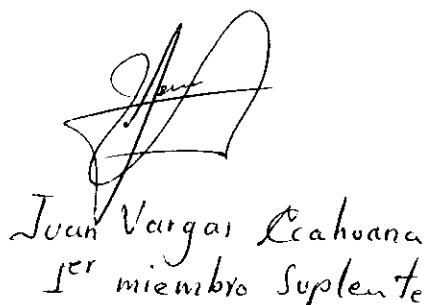 Juan Vargas Ccahuana
1er miembro Suplente